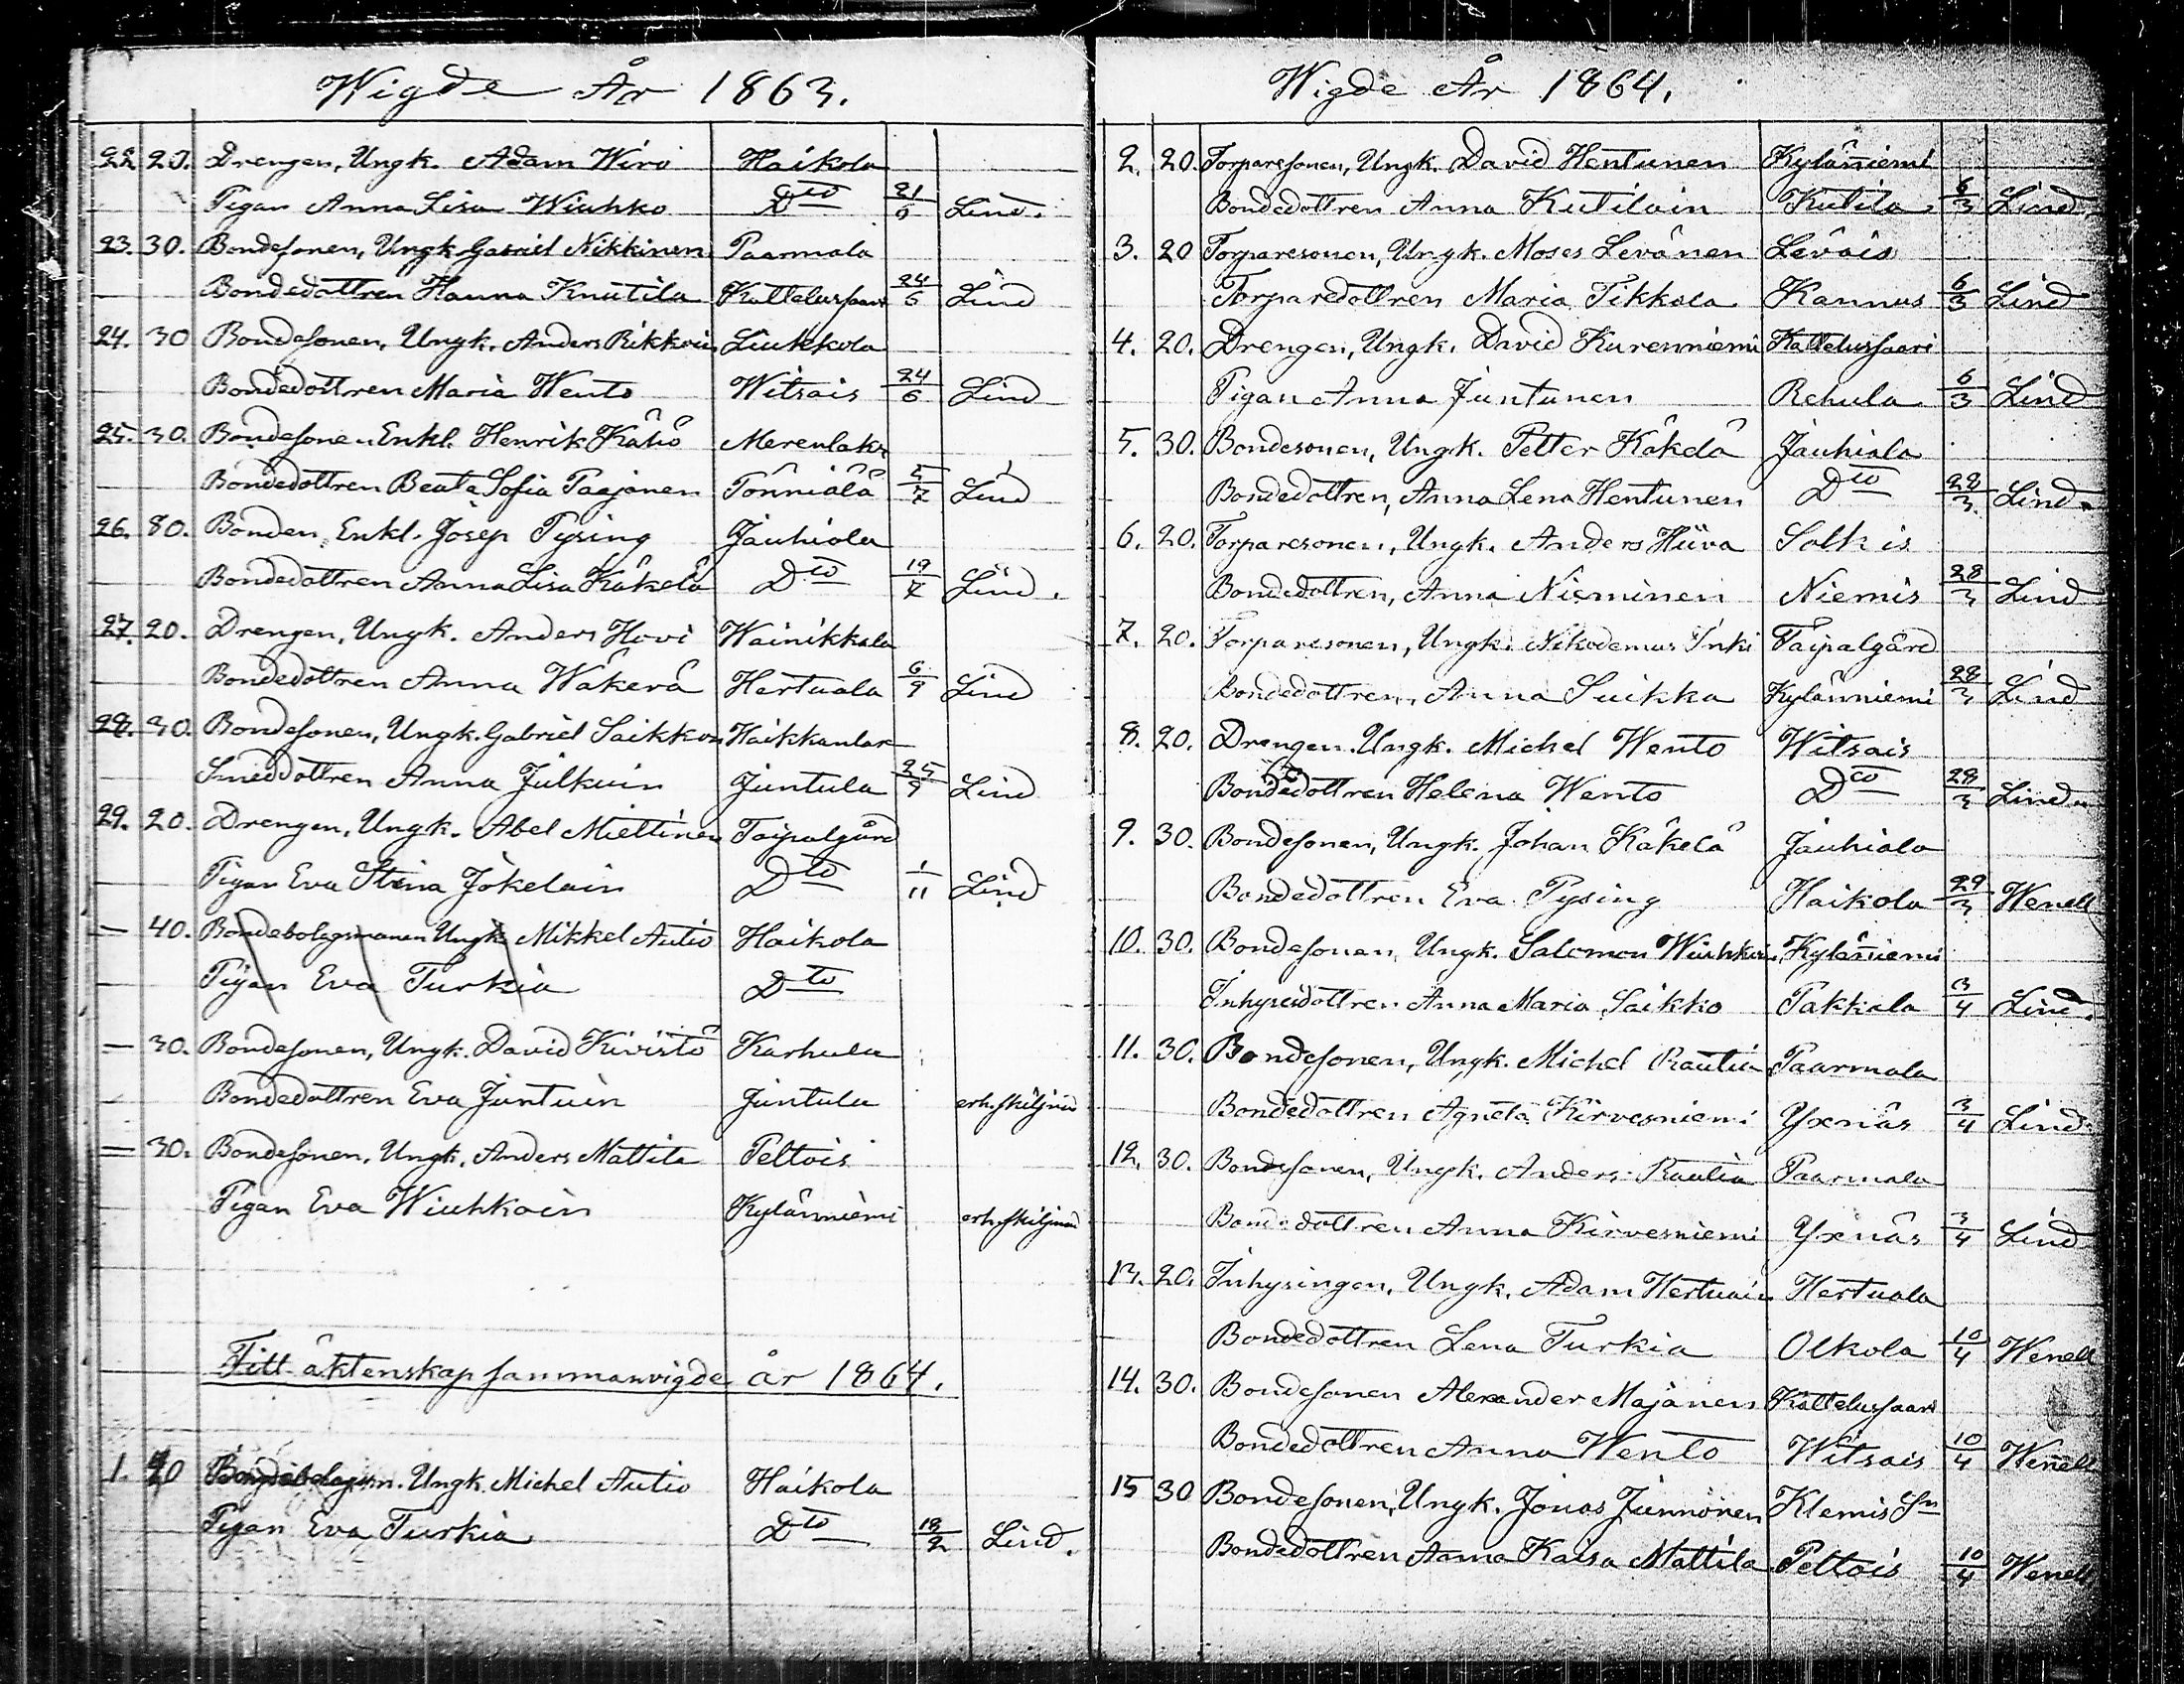 Wigde År 1863.
22. 20. Drengen, Ungk. Adam Wiro Haikola
Pigan Anna Lisa Wiuhko Dto 21/6 Lind.
23. 30. Bondesonen, Ungk. Gabriel Nikkinen Paarmala
Bondedottren Hanna Knutila Kattelussaari 24/6 Lind
24. 30 Bondesonen, Ungk. Anders Rikkoin Liukkola
Bondedottren Maria Wento Witsais 24/6 Lind
25. 30. Bondesonen Enkl. Henrik Kähö Merenlaks
Bondedottren Beata Sofia Paajanen Tönniälä 5/7 Lind
26. 80. Bonden, Enkl. Josep Pysing Jauhiala
Bondedottren Anna Lisa Käkelä Dto 19/7 Lind.
27. 20. Drengen, Ungk. Anders Hovi Wainikkala
Bondedottren Anna Wäkevä Hertuala 6/9 Lind
28. 30. Bondesonen, Ungk. Gabriel Saikkon Haikkanlax
Smeddottren Anna Julkuin Juntula 25/9 Lind
29. 20. Drengen, Ungk. Abel Miettinen Taipalgård
Pigan Eva Stina Jokelain Dto 1/11 Lind
— 40. Bondebolagsmanen Ungk. Mikkel Autio Haikola
Pigan Eva Turkia Dto
— 30. Bondesonen, Ungk. David Kivistö Karhula
Bondedottren Eva Juntuin Juntula erh. skiljnad
— 30. Bondesonen, Ungk. Anders Mattila Peltois
Pigan Eva Wiuhkoin Kylänniemi erh. skiljnad
Till äktenskap sammanvigde år 1864.
1. 40 Bondebolagsm. Ungk. Michel Autio Haikola
Pigan Eva Turkia Dto 18/2 Lind.
Wigde År 1864.
2. 20. Torparesonen, Ungk. David Hentunen Kyläniemi
Bondedottren Anna Kutilain Kutila 6/3 Lind,
3. 20 Torparesonen, Ungk. Moses Levänen Leväis
Torparedottren Maria Tikkala Kannus 6/3 Lind
4. 20. Drengen, Ungk. David Kurenniemi Kattelussaari
Pigan Anna Juntunen Rehula 6/3 Lind
5. 30. Bondesonen, Ungk. Petter Käkelä Jauhiala
Bondedottren, Anna Lena Hentunen Dto 28/3 Lind.
6. 20. Torparesonen, Ungk. Anders Hiiva Solkis
Bondedottren, Anna Nieminen Niemis 28/3 Lind
7. 20. Torparesonen, Ungk. Nikodemus Inki Taipalgård
Bondedottren, Anna Suikka Kylänniemi 28/3 Lind
8. 20. Drengen. Ungk. Michel Wento Witsais
Bondedottren Helena Wento Dto 28/3 Lind.
9. 30. Bondesonen, Ungk. Johan Käkelä Jauhiala
Bondedottren Eva Pysing Haikola 29/3 Wenell
10. 30. Bondesonen, Ungk. Salomon Wiuhkoi. Kyläniemi
Inhysedottren Anna Maria Saikko Pakkala 3/4 Lind.
11. 30. Bondesonen, Ungk. Michel Rautia Paarmala
Bondedottren Agneta Kirvesniemi Yxnäs 3/4 Lind
12. 30. Bondesonen, Ungk. Anders Rautia Paarmala
Bondedottren Anna Kirvesniemi Yxnäs 3/4 Lind
13. 20. Inhysingen, Ungk. Adam Hertuain Hertuala
Bondedottren Lena Turkia Olkola 10/4 Wenell
14. 30. Bondesonen Alexander Majanen Kattelussaari
Bondedottren Anna Wento Witsais 10/4 Wenell
15 30 Bondesonen, Ungk. Jonas Junnonen Klemis Sn
Bondedottren Anna Kaisa Mattila Peltois 10/4 Wenell